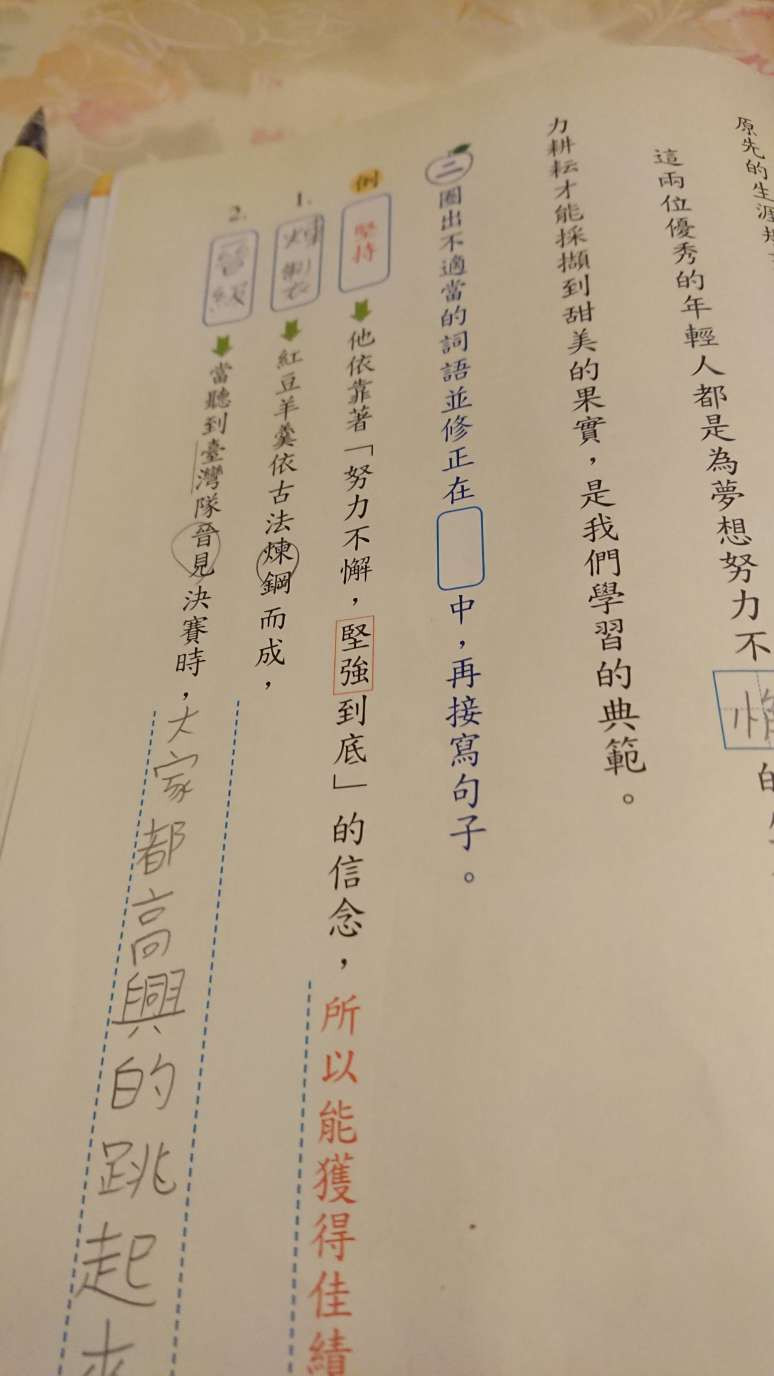 原先的生涯規
這兩位優秀的年輕人都是為夢想努力不懈的
力耕耘才能採擷到甜美的果實，是我們學習的典範。
二 圈出不適當的詞語並修正在 中，再接寫句子。
例 堅持 他依靠著「努力不懈，堅強到底」的信念，所以能獲得佳績
1. 煙製 紅豆羊羹依古法煉鋼而成，
2. 晉級 當聽到臺灣隊晉見決賽時，大家都高興的跳起來